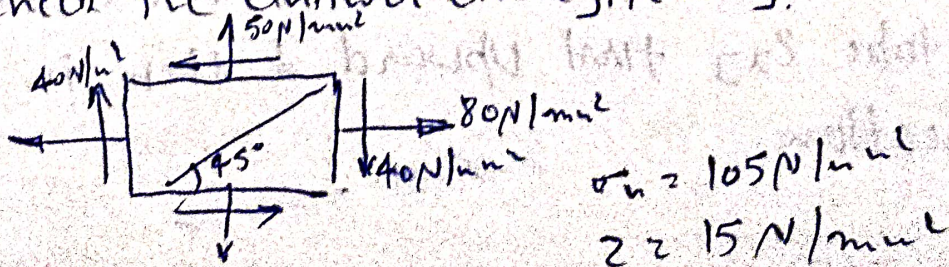 50N/mm²
40N/m²
80N/mm²
45°
40N/mm²
σn = 105N/mm²
τ = 15 N/mm²